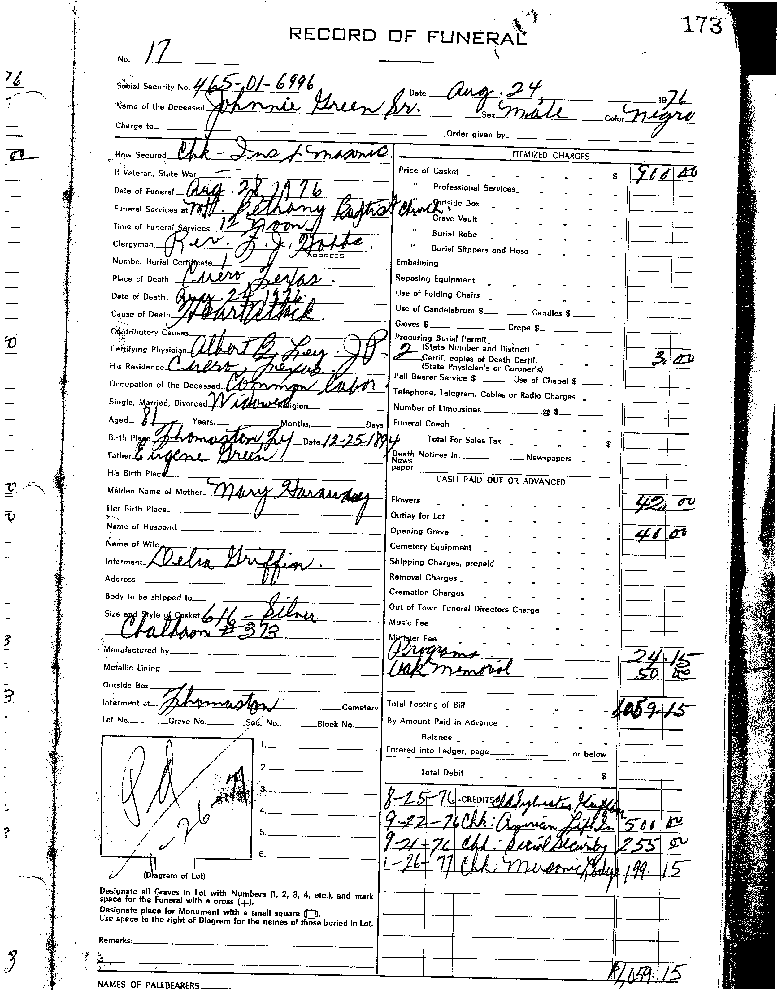 173
RECORD OF FUNERAL
No. 17
Social Security No. 465-01-6996 Date Aug. 24, 1976
Name of the Deceased Johnnie Green Sr. Sex Male Color Negro
Charge to Order given by
How Secured Chk - Ins & Masonic
If Veteran, State War
Date of Funeral Aug. 28, 1976
Funeral Services at Bethany Baptist Church
Time of Funeral Services 12 Noon
Clergyman Rev. L. J.
ADDRESS
Number Burial Certificate
Place of Death Cuero, Texas
Date of Death Aug 24 1976
Cause of Death Heart Attack
Contributory Causes
Certifying Physician Albert B. Ley J P
His Residence Cuero, Texas
Occupation of the Deceased Common labor
Single, Married, Divorced Widowed Religion
Aged 81 Years Months Days
Birth Place Thomaston Tex Date 12-25-1894
Father Eugene Green
His Birth Place
Maiden Name of Mother Mary
Her Birth Place
Name of Husband
Name of Wife
Informant Delia Griffin.
Address
Body to be shipped to
Size and Style of Casket 6/6 - Silver
# 373
Manufactured by
Metallic Lining
Outside Box
Interment at Thomaston Cemetery
Lot No. Grave No. Sec. No. Block No.
1.
2.
3.
4.
5.
6.
Pd
-26
(Diagram of Lot)
Designate all Graves in Lot with Numbers (1, 2, 3, 4, etc.), and mark
space for the Funeral with a cross (+).
Designate place for Monument with a small square (□).
Use space to the right of Diagram for the names of those buried in Lot.
Remarks:
NAMES OF PALLBEARERS
ITEMIZED CHARGES
Price of Casket $ 900 00
" Professional Services
" Outside Box
" Grave Vault
" Burial Robe
" Burial Slippers and Hose
Embalming
Reposing Equipment
Use of Folding Chairs
Use of Candelabrum $ Candles $
Gloves $ Crepe $
Procuring Burial Permit
(State Number and District)
2 Certif. copies of Death Certif. 3.00
(State Physician's or Coroner's)
Pall Bearer Service $ Use of Chapel $
Telephone, Telegram, Cables or Radio Charges
Number of Limousines @ $
Funeral Coach
Total For Sales Tax $
Death Notices in Newspapers
News
paper
CASH PAID OUT OR ADVANCED
Flowers 42 00
Outlay for Lot
Opening Grave 40 00
Cemetery Equipment
Shipping Charges, prepaid
Removal Charges
Cremation Charges
Out of Town Funeral Directors Charge
Music Fee
Minister Fee
Programs 24.15
Oak Memorial 50 00
Total Footing of Bill 1059.15
By Amount Paid in Advance
Balance
Entered into Ledger, page or below
Total Debit $
8-25-76 CREDITS
9-22-76 Chk: Life In 500 00
9-21-76 Chk: Social Security 255 00
1-26-77 Chk: Masonic Lodge 199.15
$1,059.15